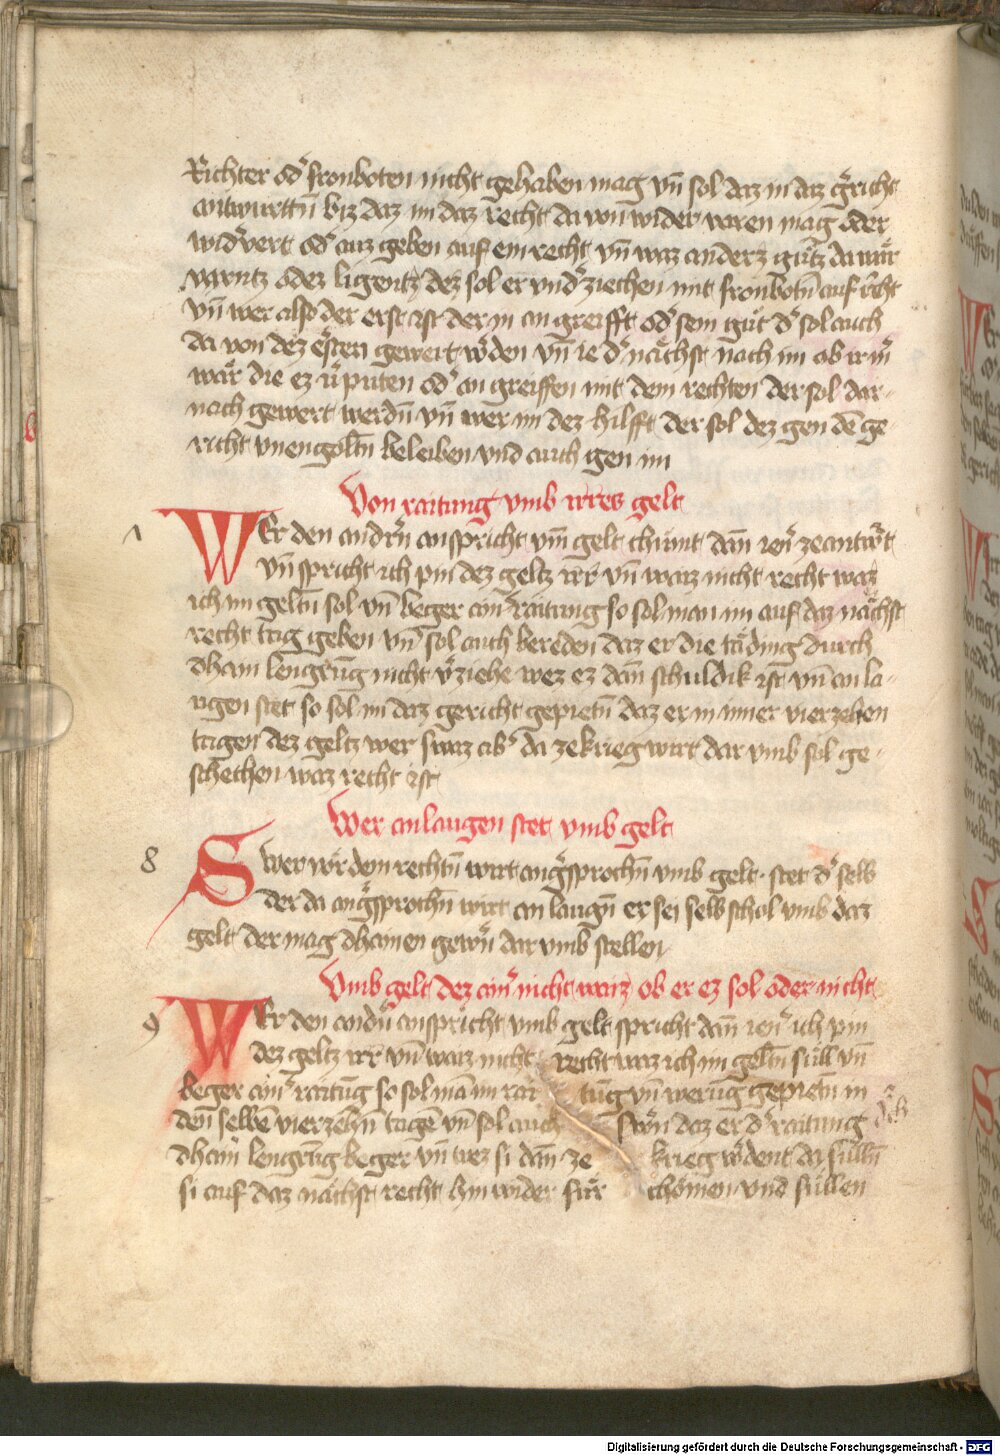 Richter od' fronboten nicht gehaben mag vn̄ sol daz in daz g'richt
antwurttn̄ biz daz im daz recht da von wider varen mag oder
wid'vert od' auz geben auf ein recht vn̄ waz anderz gůtz da wär
varntz odez ligentz dez sol er vnd'ziechen mit fronbotn̄ auf r'cht
vn̄ wer also der erst ist der in an greifft od' sein gůt d' sol auch
da von dez ersten gewert w'den vn̄ ie d' nächst nach im ob ir m'
wär die ez v'puten od' an greiffen mit dem rechten der sol dar-
nach gewert werdn̄ vn̄ wer im dez hilfft der sol dez gen dē ge-
richt vnengoltn̄ beleiben vnd auch gen im
Von raitung vmb irres gelt
WEr den andr'n anspricht vm̄ gelt chümt dān ien' ze antw'rt
vn̄ spricht ich pin dez geltz irr vn̄ waiz nicht recht waz
ich im geltn̄ sol vn̄ beger ain' raitung so sol man im auf daz nächst
recht tag geben vn̄ sol auch bereden daz er die täding durch
dhain lengrūg nicht v'ziehe wez ez dān schuldik ist vn̄ an la-
ugen stet so sol im daz gericht gepietn̄ daz er in inner vierzehen
tagen dez geltz wer swaz ab' da ze krieg wirt dar vmb sol ge-
schechen waz recht ist
Wer anlaugen stet vmb gelt
8
SWer vor dem rechtn̄ wirt ang'sprochn̄ vmb gelt · stet d' selb
der da ang'sprochn̄ wirt an laugn̄ er sei selb schol vmb daz
gelt der mag dhainen gewern̄ dar vmb stellen
Vmb gelt dez ain' nicht waiz ob er ez sol oder nicht
9
WEr den andn̄ anspricht vmb gelt spricht dān ien' ich pin
dez geltz irr vn̄ waiz nicht recht waz ich im geltn̄ süll vn̄
beger ain' raitūg so sol mā im rai tūg vn̄ werūg gepietn̄ in
den selbē vierzehn̄ tagē vn̄ sol auch sw'n daz er d' raitung
dhain lengrūg beger vn̄ wez si dān ze krieg w'dent da sülln̄
si auf daz nächst recht hin wider für chömen vnd süllen
Digitalisierung gefördert durch die Deutsche Forschungsgemeinschaft - DFG